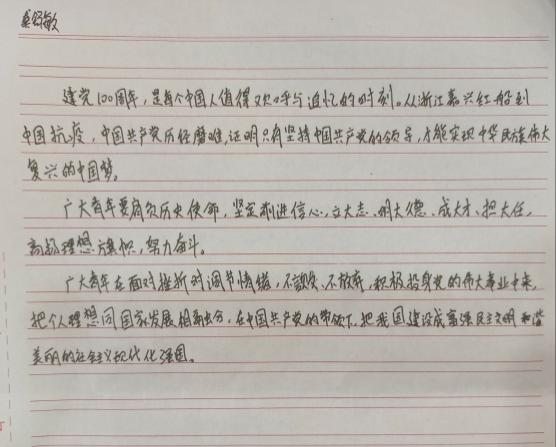 敏
建党100周年,是每个中国人值得欢呼与追忆的时刻。从浙江嘉兴红船到
中国抗疫,中国共产党历经磨难,证明只有坚持中国共产党的领导,才能实现中华民族伟大
复兴的中国梦。
广大青年要肩负历史使命,坚定前进信心,立大志、明大德、成大才、担大任,
高扬理想旗帜,努力奋斗。
广大青年在面对挫折时调节情绪,不颓丧、不放弃,积极投身党的伟大事业中来,
把个人理想同国家发展相融合,在中国共产党的带领下,把我国建设成富强民主文明和谐
美丽的社会主义现代化强国。